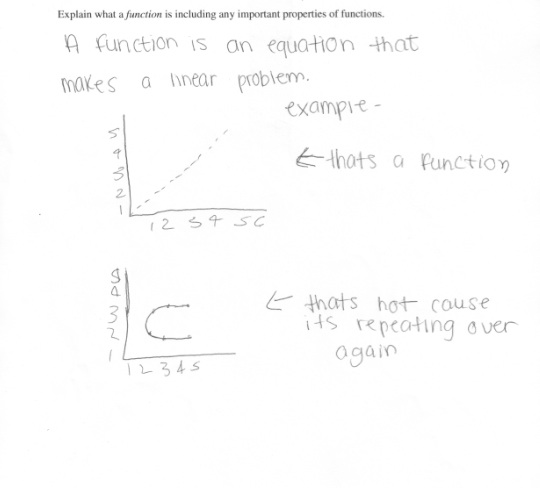 Explain what a function is including any important properties of functions.
A function is an equation that
makes a linear problem.
example -
5
4
3
2
1
1 2 3 4 5 6
← thats a function
5
4
3
2
1
1 2 3 4 5
← thats not cause
its repeating over
again